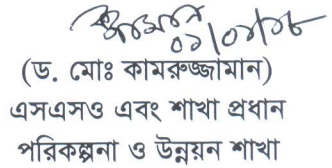 ০১/০৮/১৮
(ড. মোঃ কামরুজ্জামান)
এসএসও এবং শাখা প্রধান
পরিকল্পনা ও উন্নয়ন শাখা